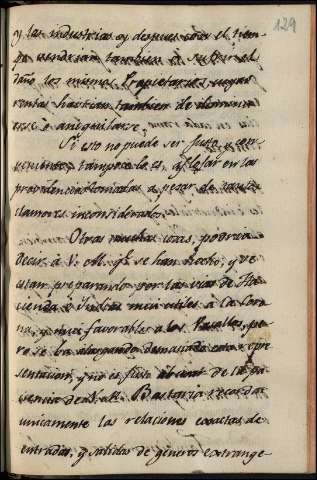 129
y las industrias y despues con el tiem-
po vendrian tambien à sufrir el
daño los mismos Propietarios cuyas
rentas havrian tambien de deminu
irse ò aniquilarse.
Si esto no puede ser justo, con-
veniente, tampoco lo es, aflojar en las
providencias tomadas, a pesar de tantos
clamores inconsiderados.
Otras muchas cosas, podria
decir à V. M. qe. se han hecho, y se
estan preparando por las vias de Ha-
cienda è Indias mui utiles à la Coro
na, y mui favorables à los Vasallos, pe-
ro se ha alargando demasiado esta repre
sentacion, y no es justo abusar de la pa
ciencia de V. M. Bastaria recordar
unicamente las relaciones exactas de
entradas, y salidas de generos extrange-